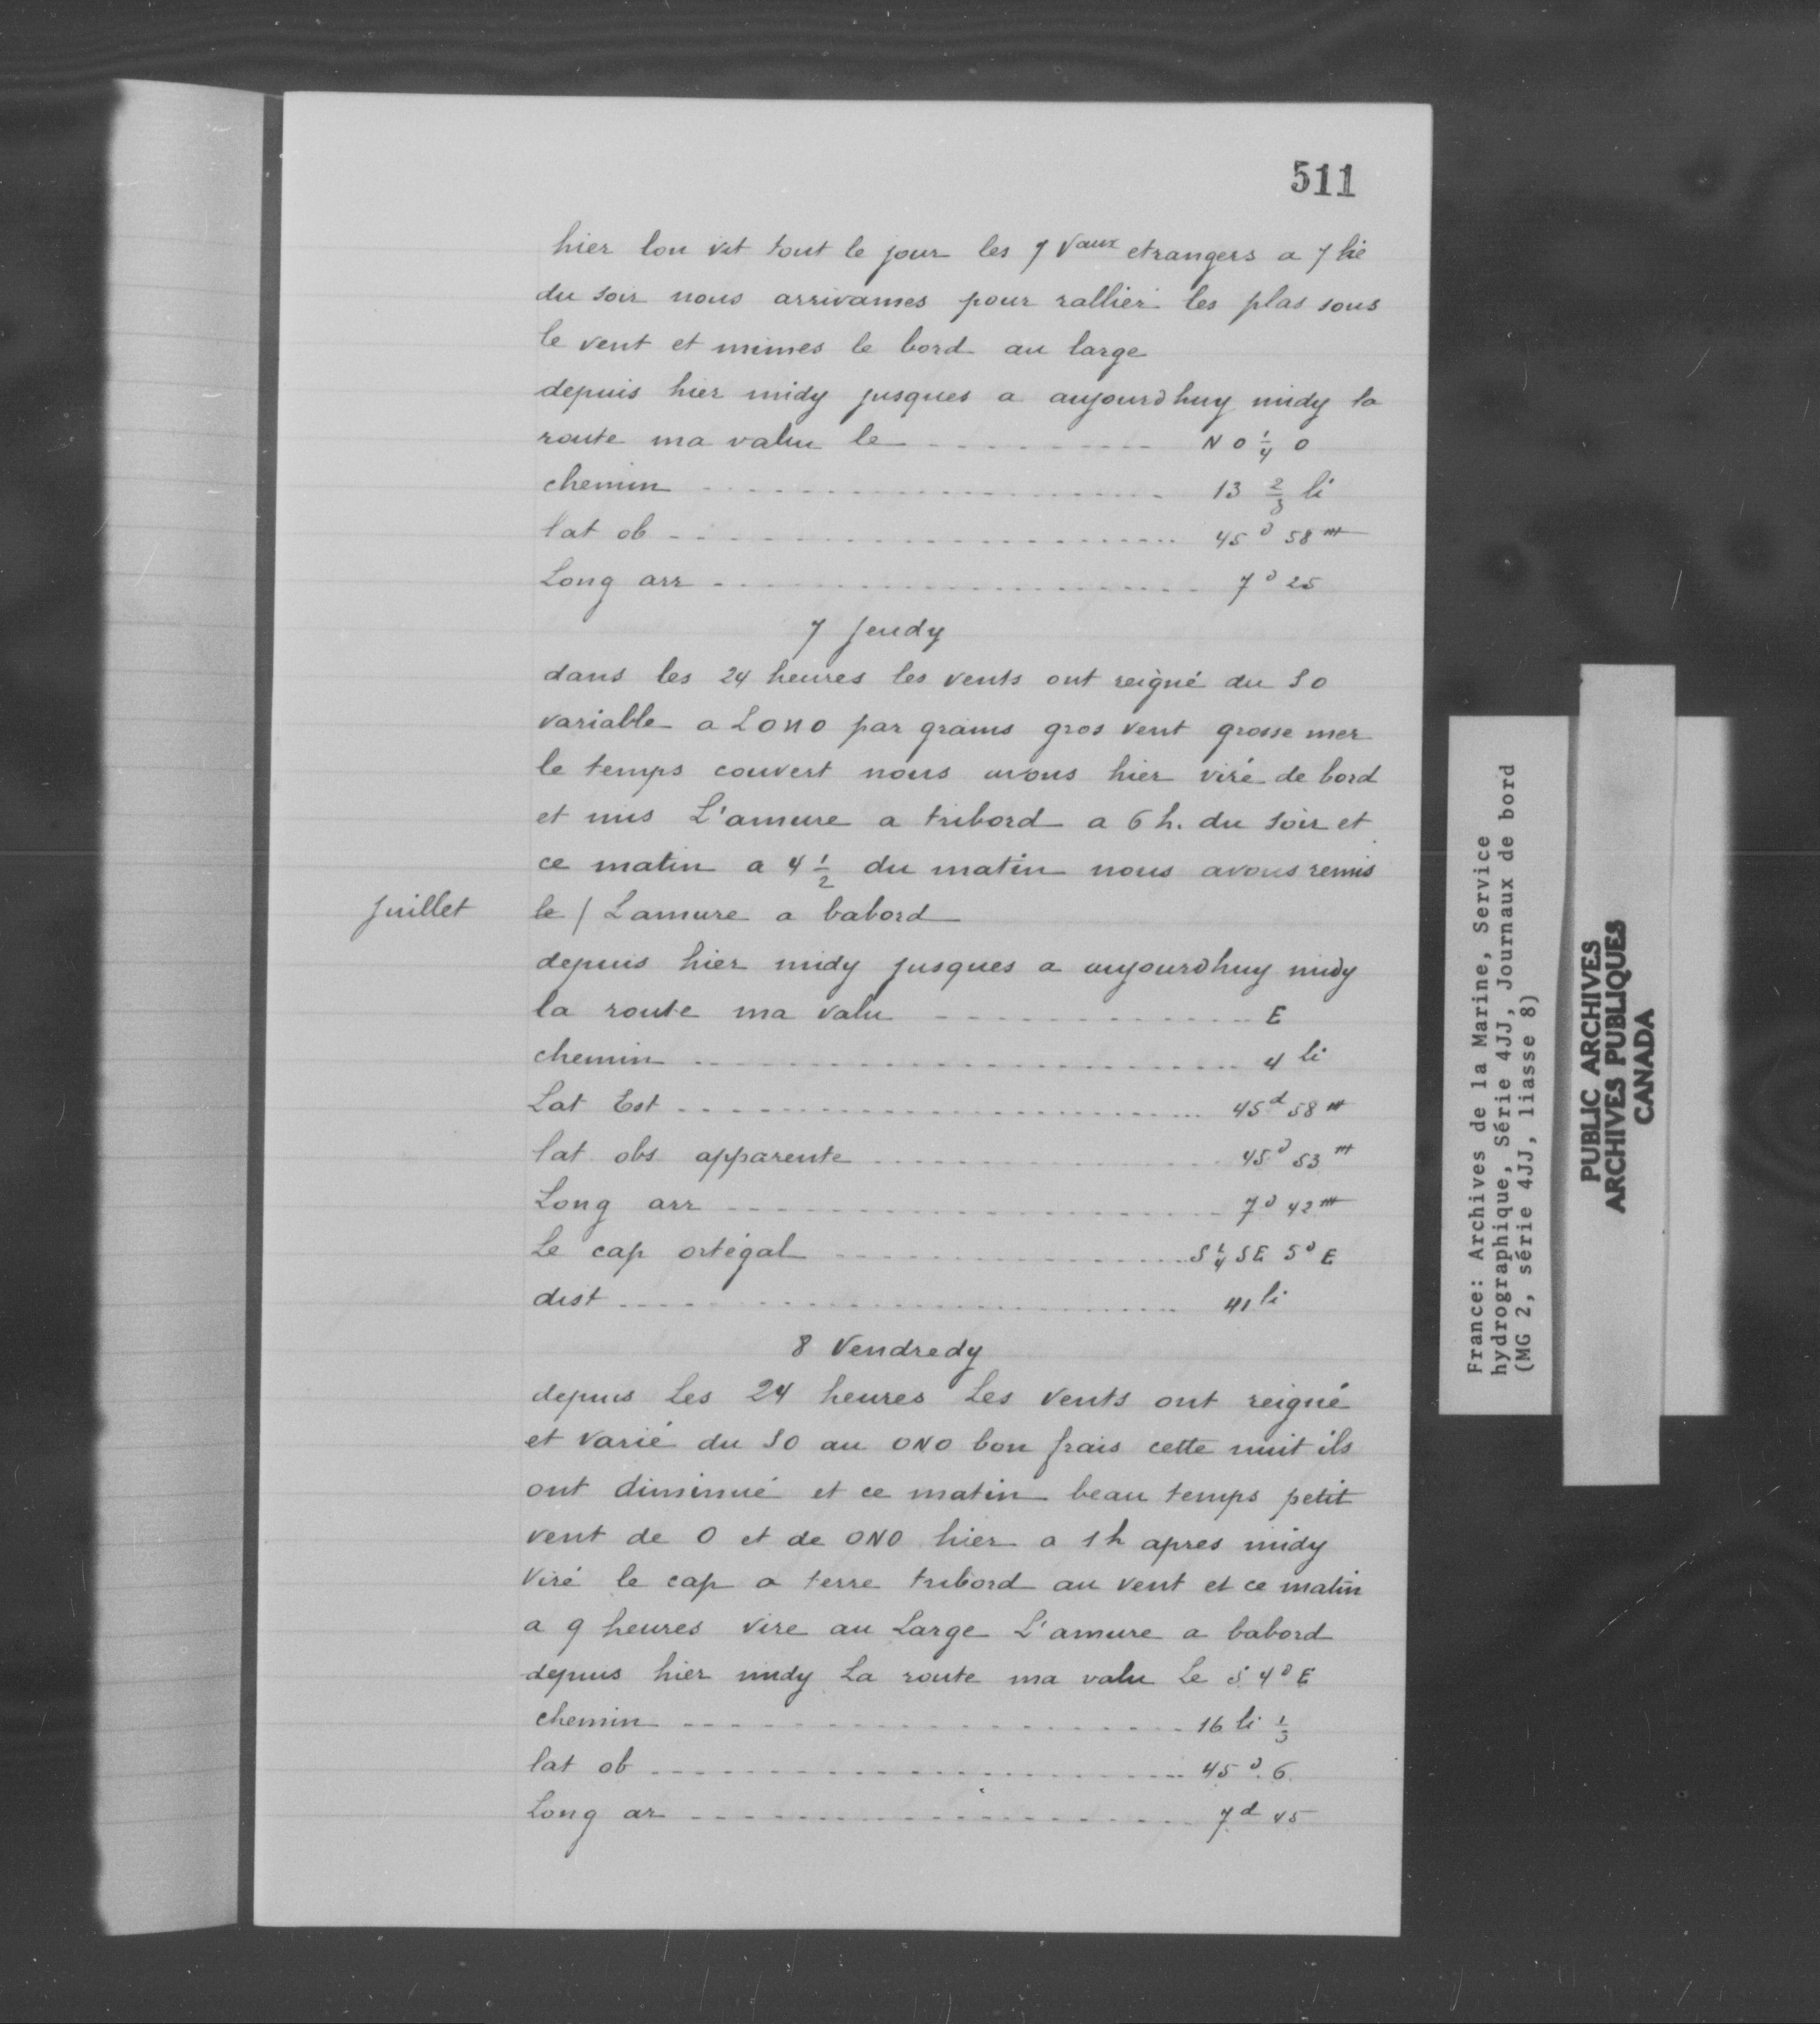 511
hier lon vit tout le jour les 7 Vaux etrangers a 7 he
du soir nous arrivames pour rallier les plas sous
le vent et mimes le bord au large
depuis hier midy jusques a aujourdhuy midy la
route ma valu le - - - - - - - - - - N O 1/4 O
chemin - - - - - - - - - - - - - - - - - 13 2/3 li
lat ob - - - - - - - - - - - - - - - - - - 45 d 58 m
Long arr - - - - - - - - - - - - - - - - - 7 d 25
7 Jeudy
dans les 24 heures les vents ont reigné du S O
variable a L O N O par grains gros vent grosse mer
le temps couvert nous avons hier viré de bord
et mis L'amure a tribord a 6 h. du soir et
ce matin a 4 1/2 du matin nous avons remis
Juillet
le / Lamure a babord
depuis hier midy jusques a aujourdhuy midy
la route ma valu - - - - - - - - - - - - E
chemin - - - - - - - - - - - - - - - - - - 4 li
Lat Est - - - - - - - - - - - - - - - - - - 45 d 58 m
lat obs apparente - - - - - - - - - - - - 45 d 53 m
Long arr - - - - - - - - - - - - - - - - - 7 d 42 m
Le cap ortégal - - - - - - - - - - - - S 1/4 SE 5 d E
dist - - - - - - - - - - - - - - - - - - - 41 li
8 Vendredy
depuis Les 24 heures Les Vents ont reigné
et varié du S O au ONO bon frais cette nuit ils
ont diminué et ce matin beau temps petit
vent de O et de ONO hier a 1 h apres midy
Viré le cap a terre tribord au vent et ce matin
a 9 heures vire au Large L'amure a babord
depuis hier midy La route ma valu Le S. 4 d E
chemin - - - - - - - - - - - - - - - - - 16 li 1/3
lat ob - - - - - - - - - - - - - - - - - - 45 d. 6.
Long ar - - - - - - - - - - - - - - - - - 7 d 45
France: Archives de la Marine, Service
hydrographique, Série 4JJ, Journaux de bord
(MG 2, série 4JJ, liasse 8)
PUBLIC ARCHIVES
ARCHIVES PUBLIQUES
CANADA